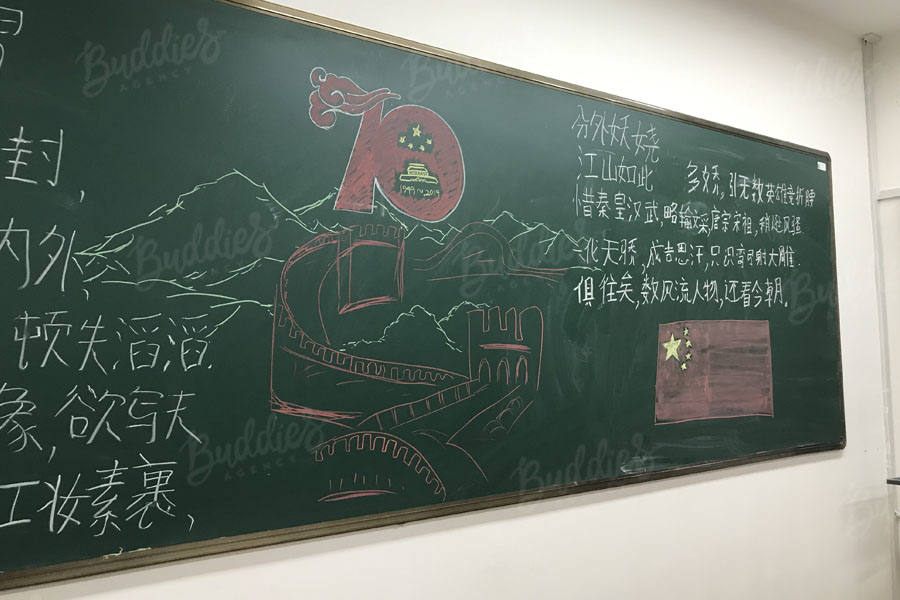 封，
内外，
顿失滔滔.
象，欲与天
妆素裹，
70
1949~2019
分外妖娆
江山如此 多娇，引无数英雄竞折腰
惜秦皇汉武，略输文采，唐宗宋祖，稍逊风骚
代天骄，成吉思汗，只识弯弓射大雕.
俱往矣，数风流人物，还看今朝。
Buddies
AGENCY